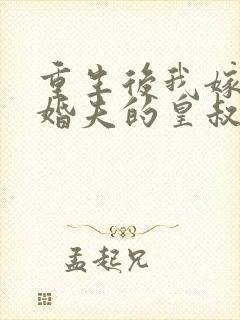 重生後我嫁
婚夫的皇叔
孟起兄